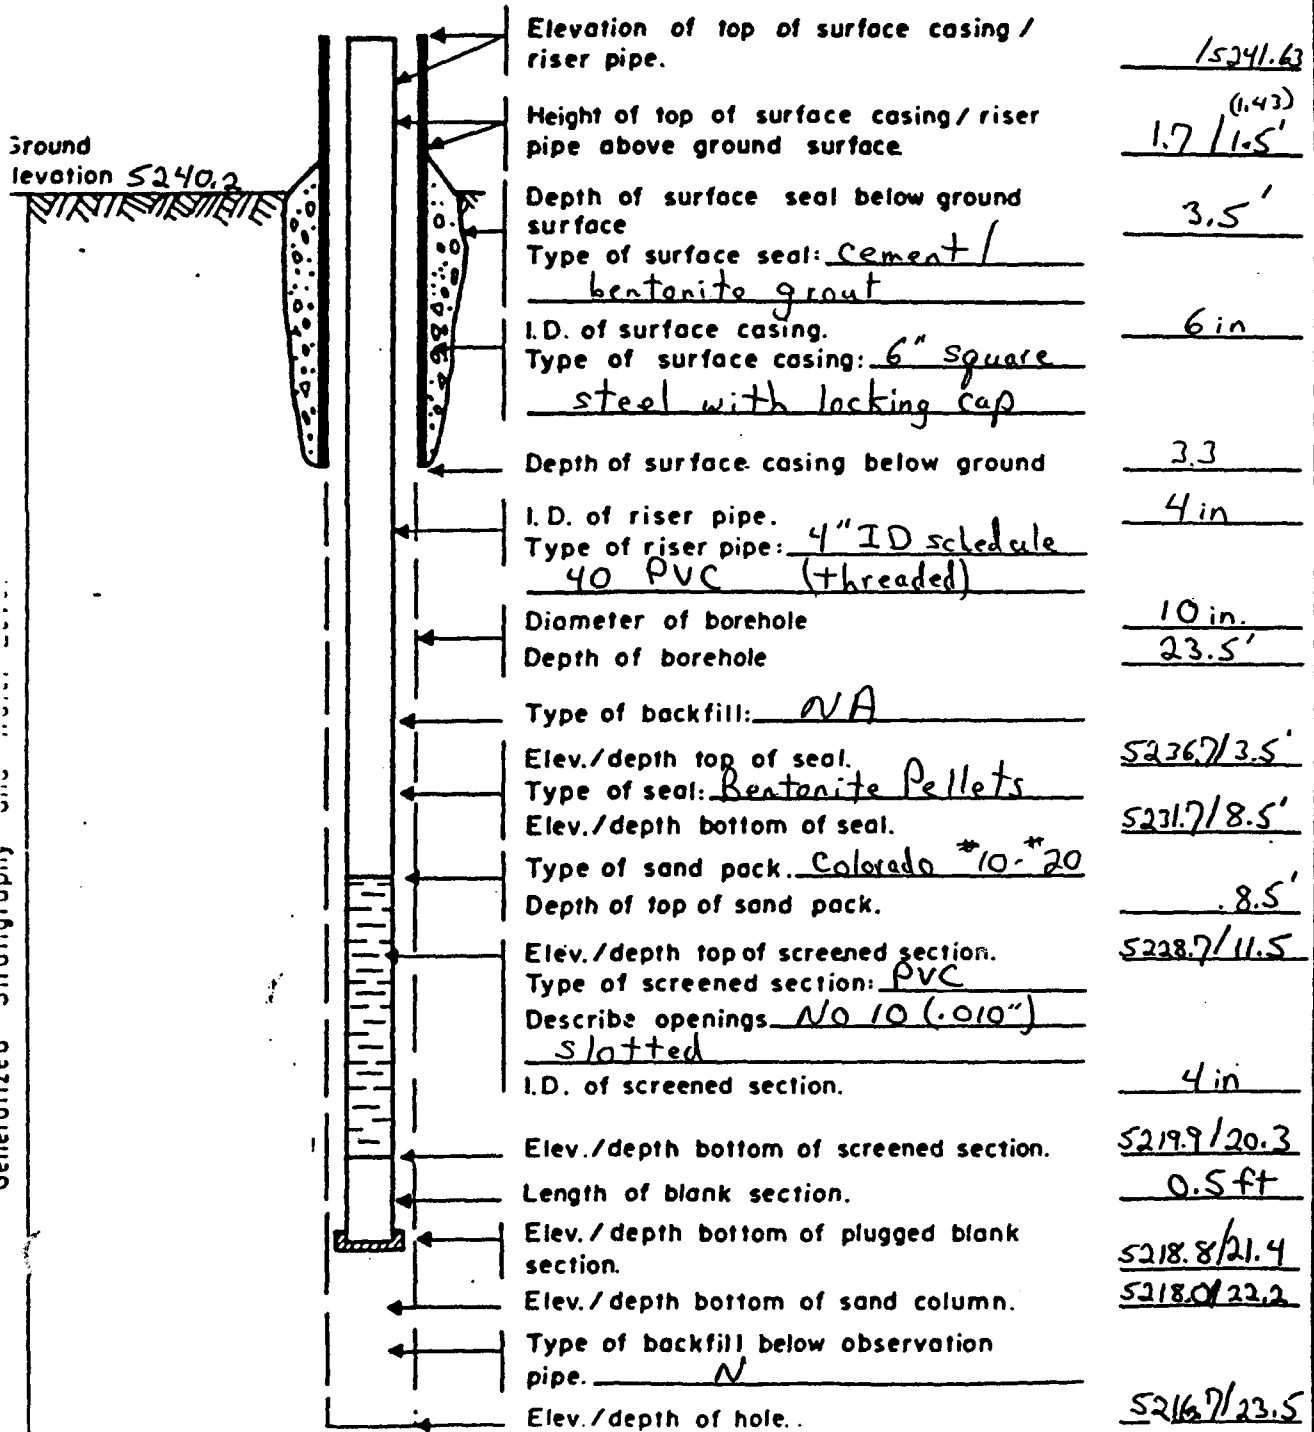 Elevation of top of surface casing /
riser pipe. /5241.63
Height of top of surface casing / riser (1.43)
pipe above ground surface 1.7 / 1.5'
Ground
levation 5240.2
Depth of surface seal below ground
surface 3.5'
Type of surface seal: cement /
bentonite grout
I.D. of surface casing. 6 in
Type of surface casing: 6" square
steel with locking cap
Depth of surface casing below ground 3.3
I.D. of riser pipe. 4 in
Type of riser pipe: 4" ID schedule
40 PVC (threaded)
Diameter of borehole 10 in.
Depth of borehole 23.5'
Type of backfill: NA
Elev./depth top of seal. 5236.7/3.5'
Type of seal: Bentonite Pellets
Elev./depth bottom of seal. 5231.7/8.5'
Type of sand pack. Colorado #10-#20
Depth of top of sand pack. 8.5'
Elev./depth top of screened section. 5228.7/11.5
Type of screened section: PVC
Describe openings No 10 (.010")
slotted
I.D. of screened section. 4 in
Elev./depth bottom of screened section. 5219.9/20.3
Length of blank section. 0.5 ft
Elev./depth bottom of plugged blank
section. 5218.8/21.4
Elev./depth bottom of sand column. 5218.0/22.2
Type of backfill below observation
pipe. N
Elev./depth of hole.. 5216.7/23.5
Generalized Stratigraphy and